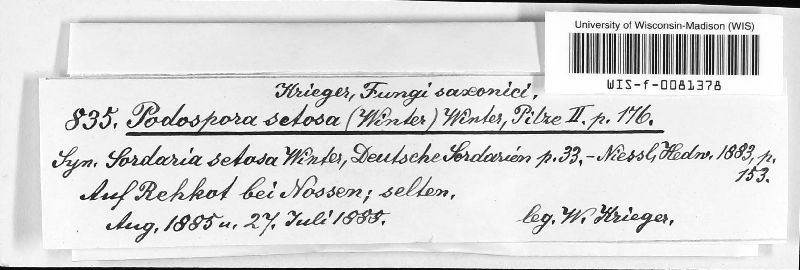 University of Wisconsin-Madison (WIS)
WIS-f-0081378
Krieger, Fungi saxonici.
835. Podospora setosa (Winter) Winter, Pilze II. p. 176.
Syn. Sordaria setosa Winter, Deutsche Sordarien p. 33. - Niessl, Hedw. 1883, p.
153.
Auf Rehkot bei Nossen; selten.
Aug. 1885 u. 27. Juli 1888.
leg. W. Krieger.